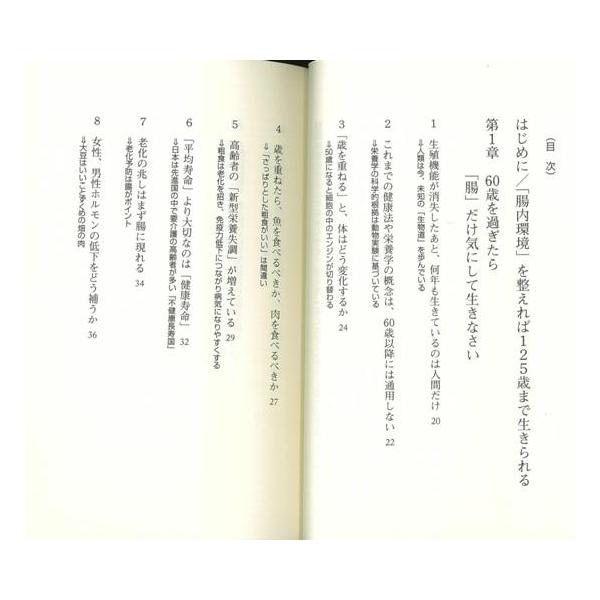 〔目 次〕
はじめに/「腸内環境」を整えれば125歳まで生きられる
第1章 60歳を過ぎたら
「腸」だけ気にして生きなさい
1 生殖機能が消失したあと、何年も生きているのは人間だけ 20
⇒人類は今、未知の「生物道」を歩んでいる
2 これまでの健康法や栄養学の概念は、60歳以降には通用しない 22
⇒栄養学の科学的根拠は動物実験に基づいている
3 「歳を重ねる」と、体はどう変化するか 24
⇒50歳になると細胞の中のエンジンが切り替わる
4 歳を重ねたら、魚を食べるべきか、肉を食べるべきか 27
⇒「さっぱりとした粗食がいい」は間違い
5 高齢者の「新型栄養失調」が増えている 29
⇒粗食は老化を招き、免疫力低下につながり病気になりやすくする
6 「平均寿命」より大切なのは「健康寿命」 32
⇒日本は先進国の中で要介護の高齢者が多い「不健康長寿国」
7 老化の兆しはまず腸に現れる 34
⇒老化予防は腸がポイント
8 女性、男性ホルモンの低下をどう補うか 36
⇒大豆はいいことずくめの畑の肉